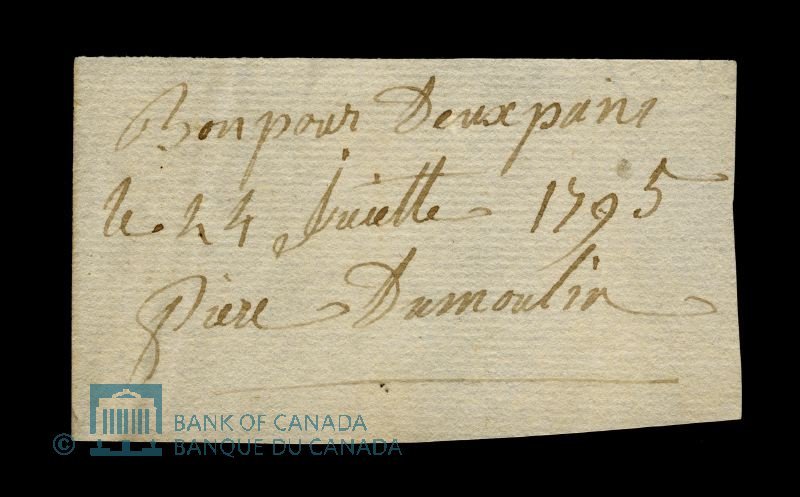 Bon pour Deux pains
le 24 Juiette 1795
Piere Dumoulin
© BANK OF CANADA
BANQUE DU CANADA